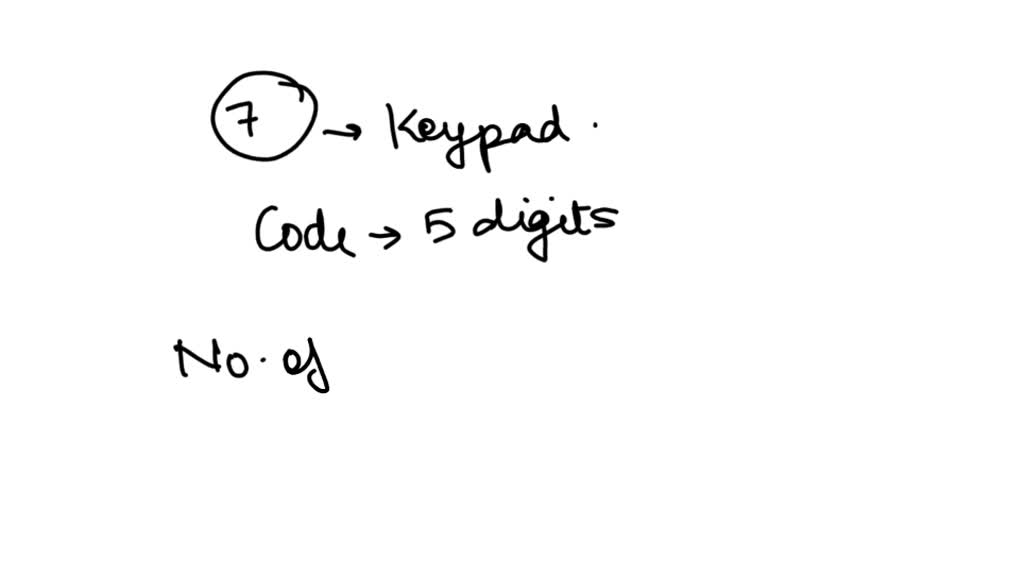 7 → Keypad.
Code → 5 digits
No. of